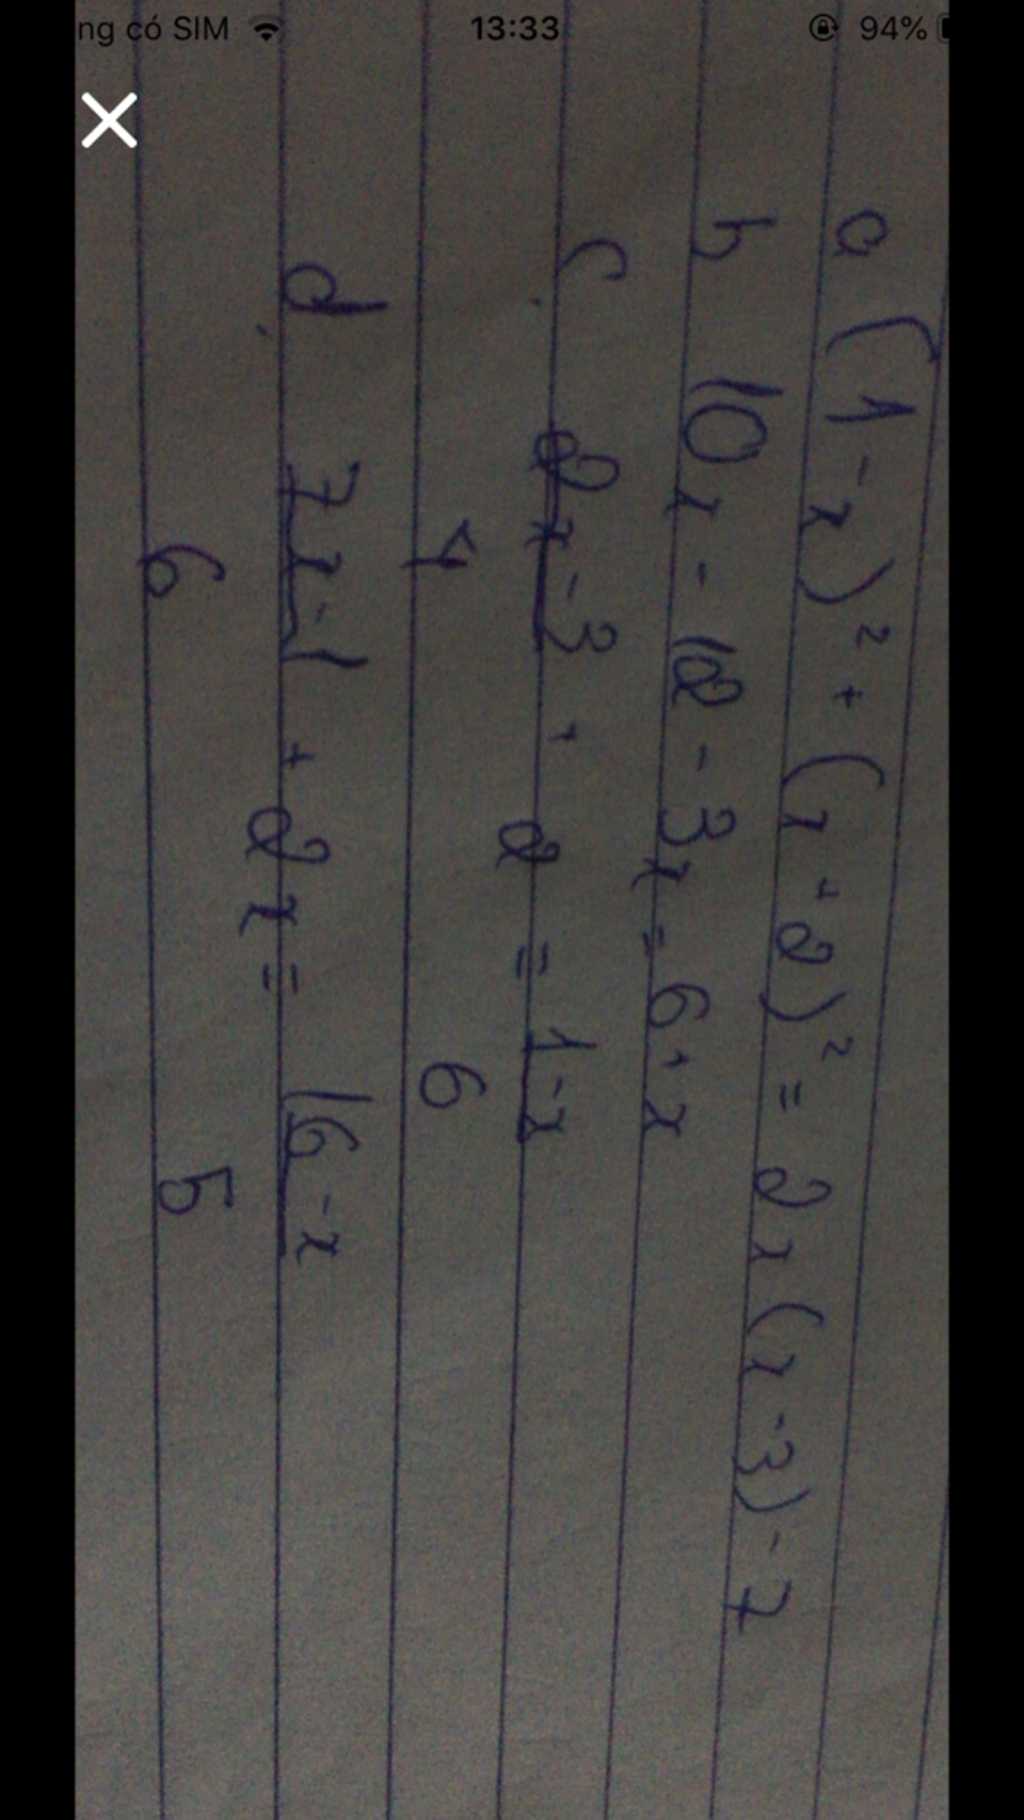 ng có SIM 13:33 94%
a (1-x)² + (x+2)² = 2x(x-3)-7
b 10x - 12 - 3x = 6+x
c 2x-3 + 2 = 1-x
4 6
d 7x-1 + 2x = 16-x
6 5